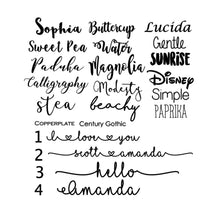 Sophia Buttercup Lucida
Sweet Pea Water Gentle
Paduka Magnolia SUNRISE
Calligraphy Modesty DISNEY
stea beachy Simple
PAPRIKA
COPPERPLATE Century Gothic
1 I love you
2 scott amanda
3 hello
4 Amanda